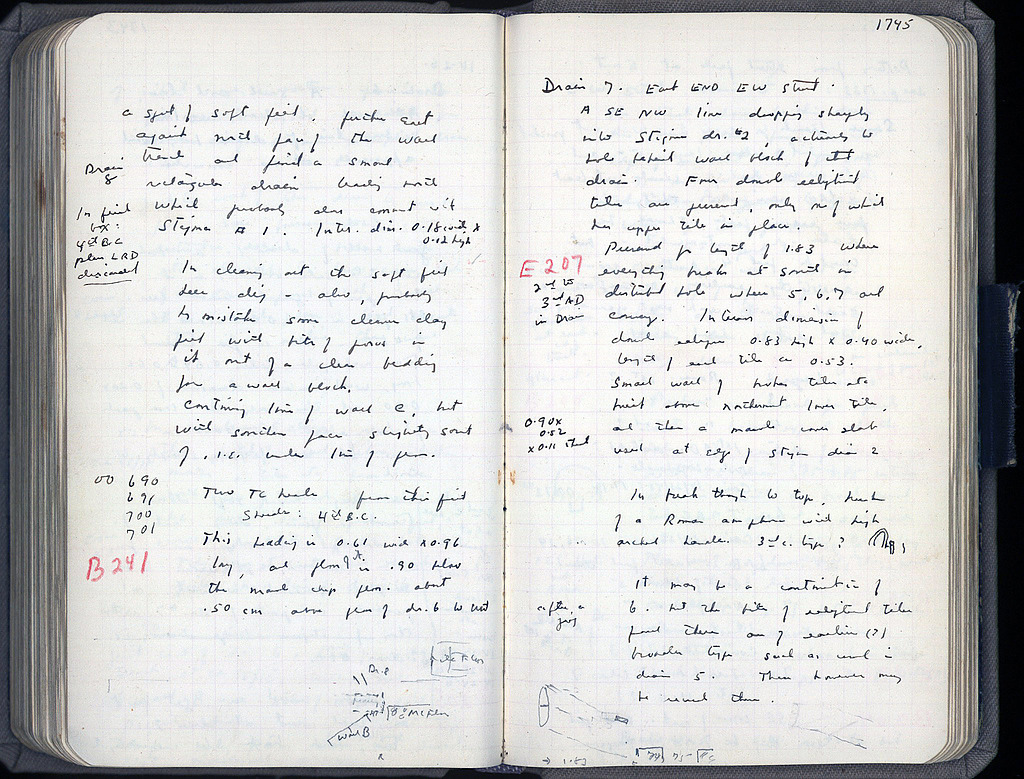 a spot of soft fill. further East
against north face of the wall
trench and find a small
Drain
8
rectangular drain leading north
which probably also connect with
In fill
4th B.C
Stigma # 1. Inter. dim. 0.18 wide x
0.12 high
plan LRD
In cleaning out the soft fill
deer dug - also, probably
by mistake some cleaner clay
fill with bits of poros in
it out of a clear bedding
for a wall block.
Continuing line of wall C, but
with southern face slightly south
of .I.C. under line of
00 690
691
700
701
Two TC heads from this fill
Sherds: 4th B.C.
This bedding is 0.61 wide x 0.96
long, and is .90 below
the marble chip floor. about
.50 cm above floor of dr. 6 to west
B 241
Dr. 8
wall B
1745
Drain 7. East END EW street.
A SE NW line dropping sharply
into Stigma dr. #2, actually to
hole behind wall block of that
drain. Four double elliptical
tiles are preserved, only one of which
has upper tile in place
Preserved for length of 1.83 where
E 207
2nd to
3rd AD
in Drain
everything breaks at south in
disturbed hole where 5, 6, 7 all
converge. Interior dimension of
double ellipse 0.83 high x 0.40 wide,
length of each tile ca 0.53.
Small wall of broken tiles etc
built above northernmost lower tile,
0.90 x
0.52
x 0.11 thick
and then a marble cover slab
used at edge of stigma drain 2
In break through to top, neck
of a Roman amphora with high
arched handles. 3rd c. type?
It may be a continuation of
6. but the bits of elliptical tiles
found there are of earlier (?)
broader type such as used in
drain 5. These however may
be reused there.
1.83